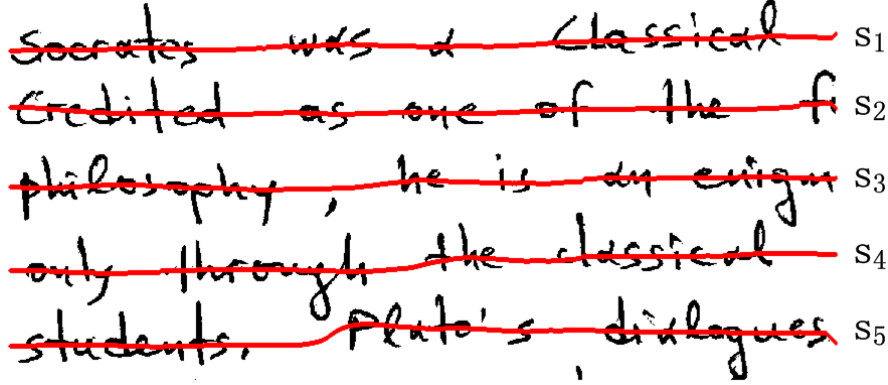 Socrates was a Classical S1
Credited as one of the fi S2
philosophy, he is an enigm S3
only through the classical S4
students. Plato's dialogues S5